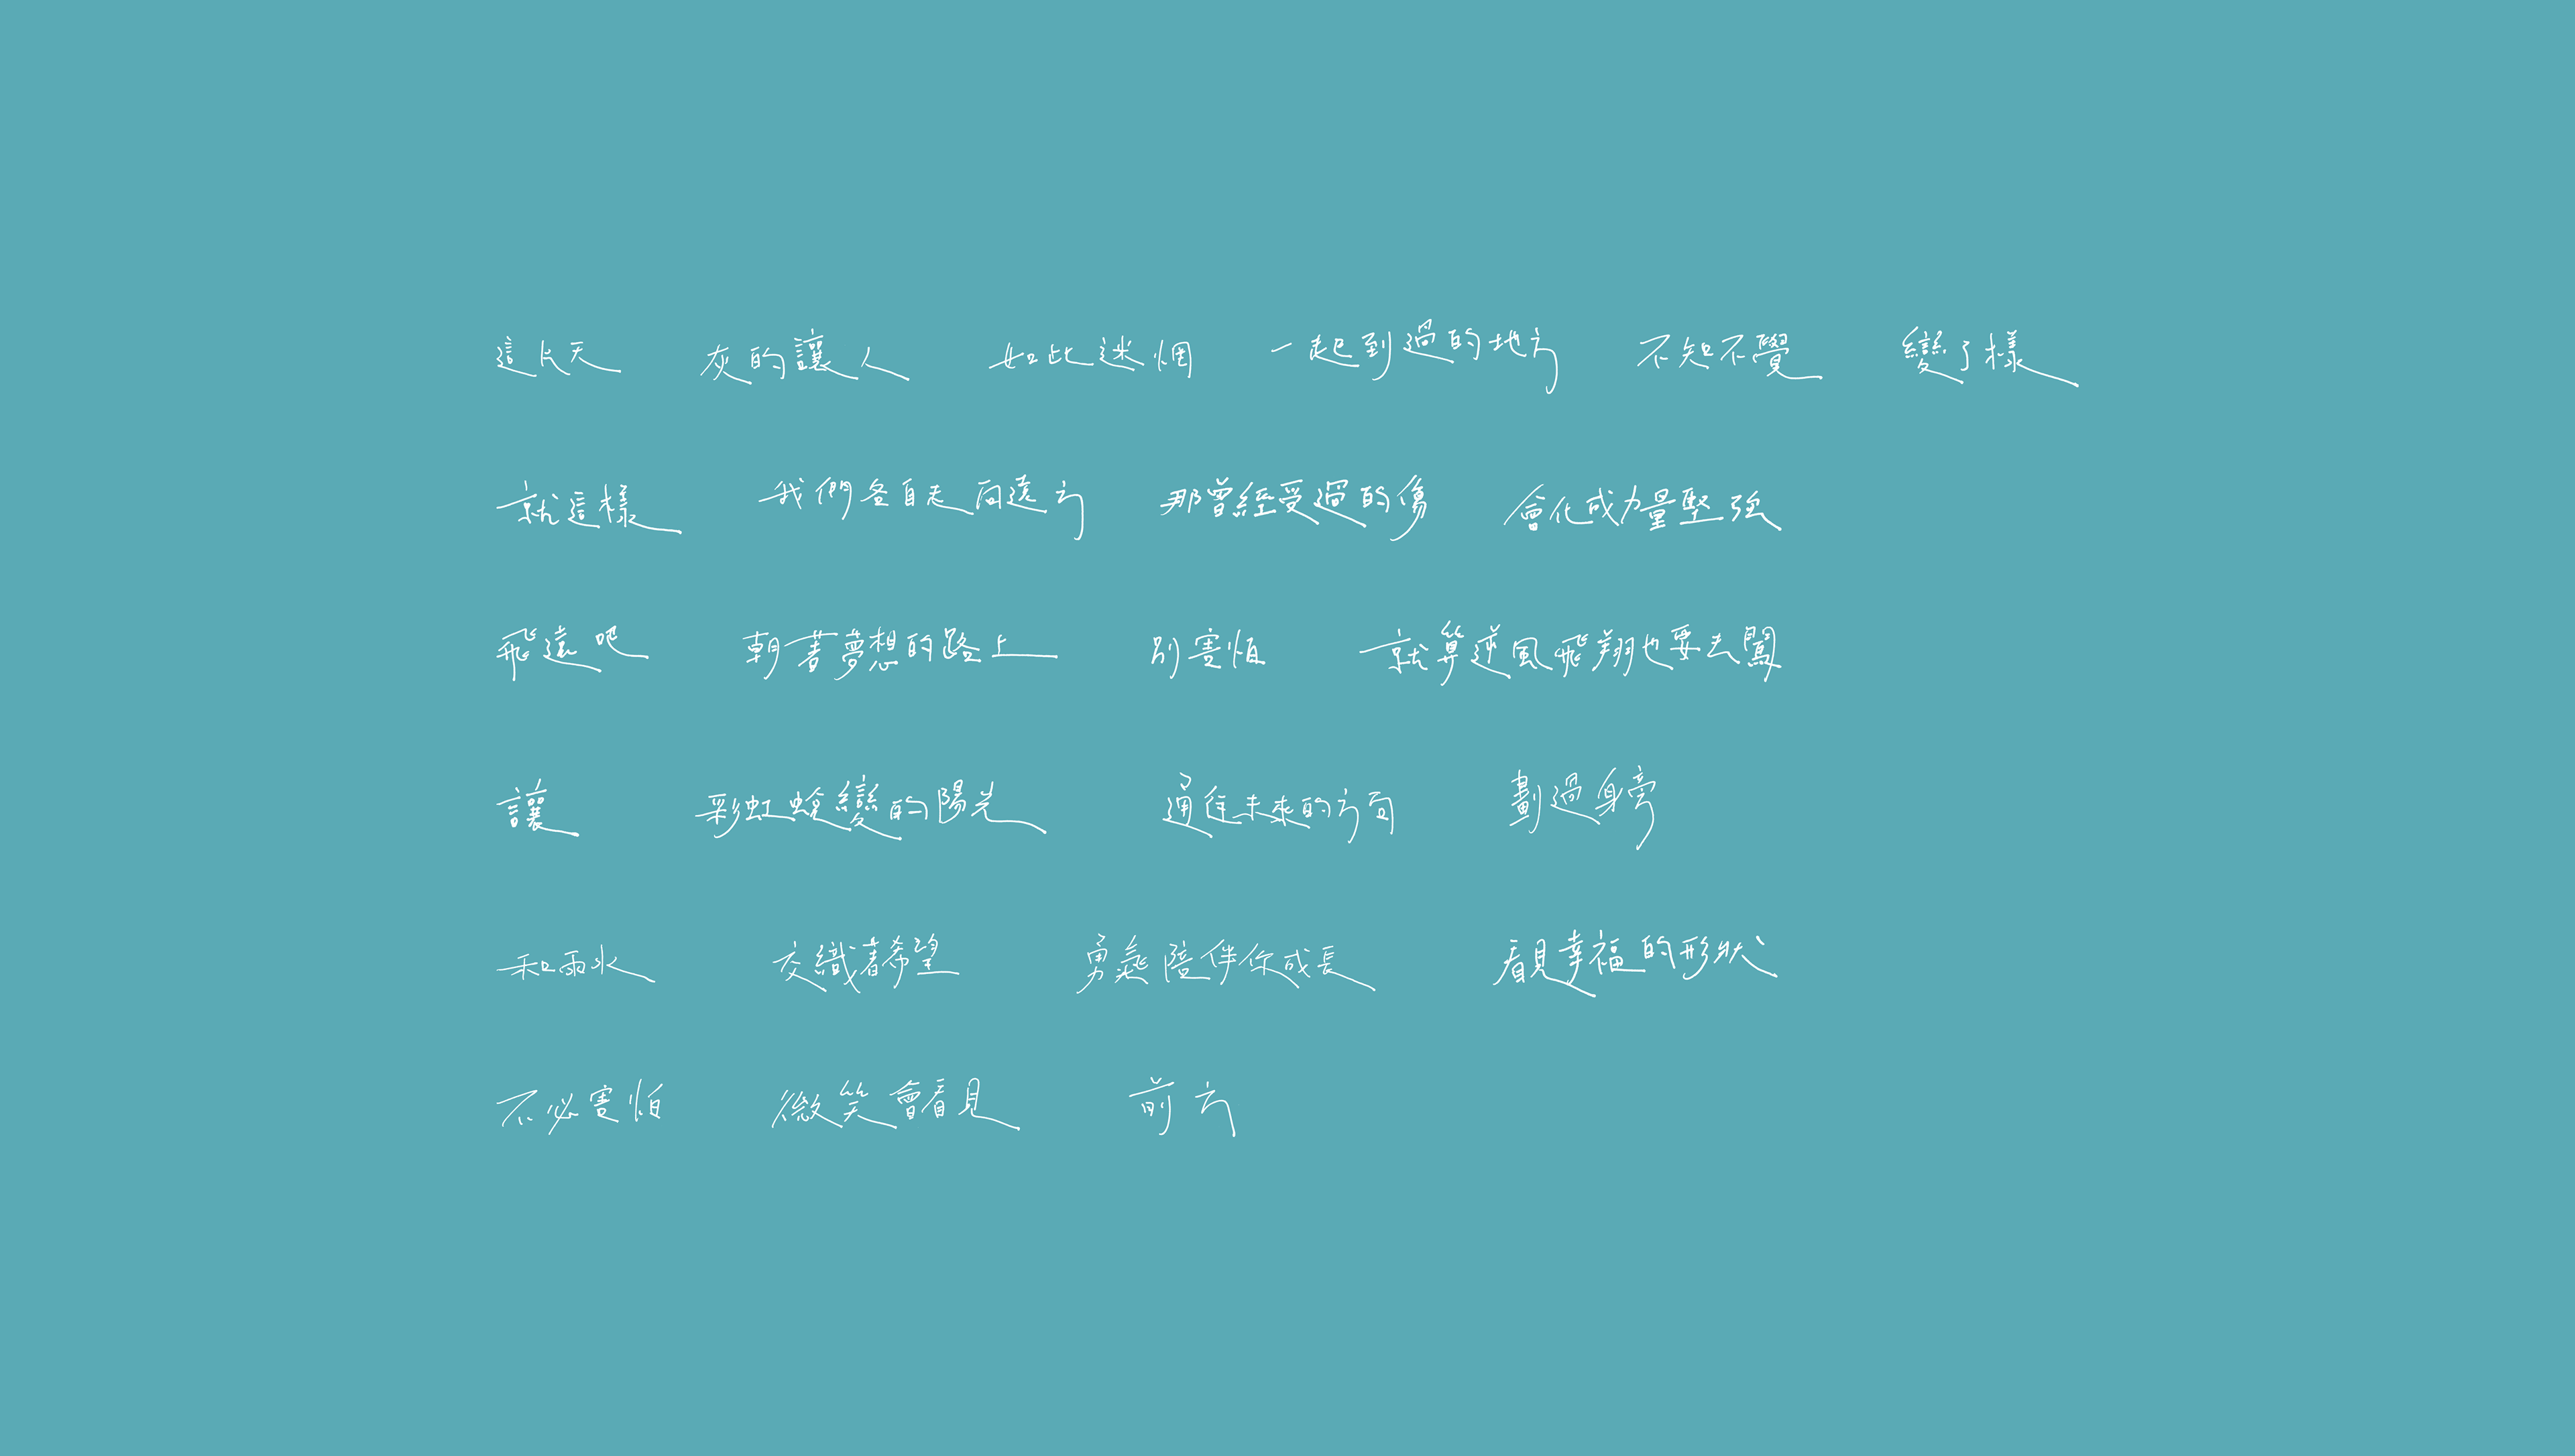 這片天 灰的讓人 如此迷惘 一起到過的地方 不知不覺 變了樣
就這樣 我們各自走向遠方 那曾經受過的傷 會化成力量堅強
飛遠吧 朝著夢想的路上 別害怕 就算逆風飛翔也要去闖
讓 彩虹蛻變的陽光 通往未來的方向 劃過身旁
和雨水 交織著希望 勇氣陪伴你成長 看見幸福的形狀
不必害怕 微笑會看見 前方